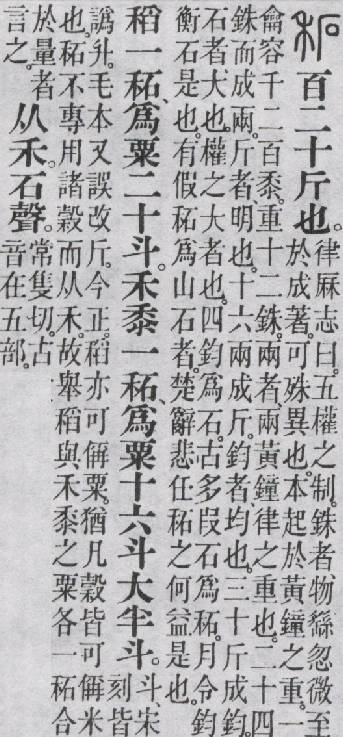 䄷 百二十斤也。
律厤志曰。五權之制。銖者物繇忽微至
於成著。可殊異也。本起於黃鐘之重。一
龠容千二百黍。重十二銖。兩者兩黃鐘律之重也。二十四
銖而成兩。斤者、明也。十六兩成斤。鈞者、均也。三十斤成鈞。
石者、大也。權之大者也。四鈞爲石。古多叚石爲䄷。月令鈞
衡石是也。有假䄷爲山石者。楚辭悲任䄷之何益是也。
稻一䄷、爲粟二十斗。禾黍一䄷、爲粟十六斗大半斗。
斗、宋
刻皆
譌升。毛本又誤改斤。今正。稻亦可偁粟。猶凡穀皆可偁米
也。䄷不專用諸穀而从禾。故舉稻與禾黍之粟各一䄷合
於量者
言之。
从禾。石聲。
常隻切。古
音在五部。